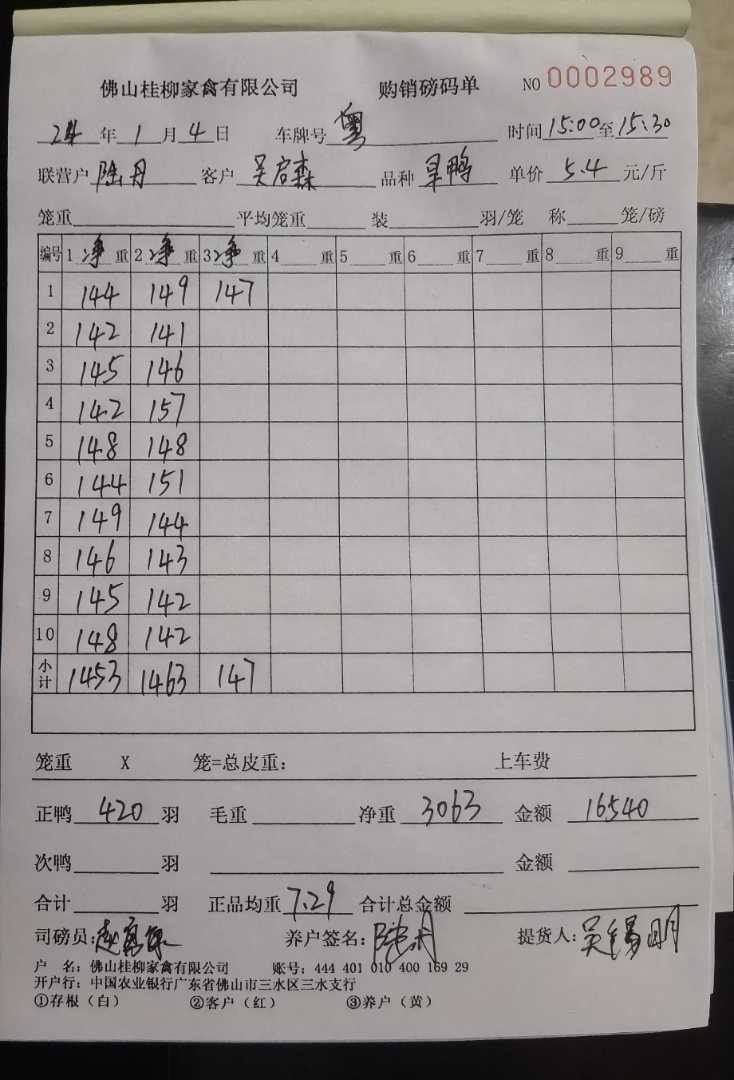 佛山桂柳家禽有限公司 购销磅码单 NO 0002989
24 年 1 月 4 日 车牌号 粤 时间 15:00 至 15:30
联营户 陆丹 客户 吴启森 品种 旱鸭 单价 5.4 元/斤
笼重 平均笼重 装 羽/笼 称 笼/磅
编号 1 净 重 2 净 重 3 净 重 4 重 5 重 6 重 7 重 8 重 9 重
1 144 149 147
2 142 141
3 145 146
4 142 157
5 148 148
6 144 151
7 149 144
8 146 143
9 145 142
10 148 142
小计 1453 1463 147
笼重 X 笼=总皮重： 上车费
正鸭 420 羽 毛重 净重 3063 金额 16540
次鸭 羽 金额
合计 羽 正品均重 7.29 合计总金额
司磅员： 养户签名：陆丹 提货人：吴锡明
户 名：佛山桂柳家禽有限公司 账号：444 401 010 400 169 29
开户行：中国农业银行广东省佛山市三水区三水支行
①存根（白） ②客户（红） ③养户（黄）